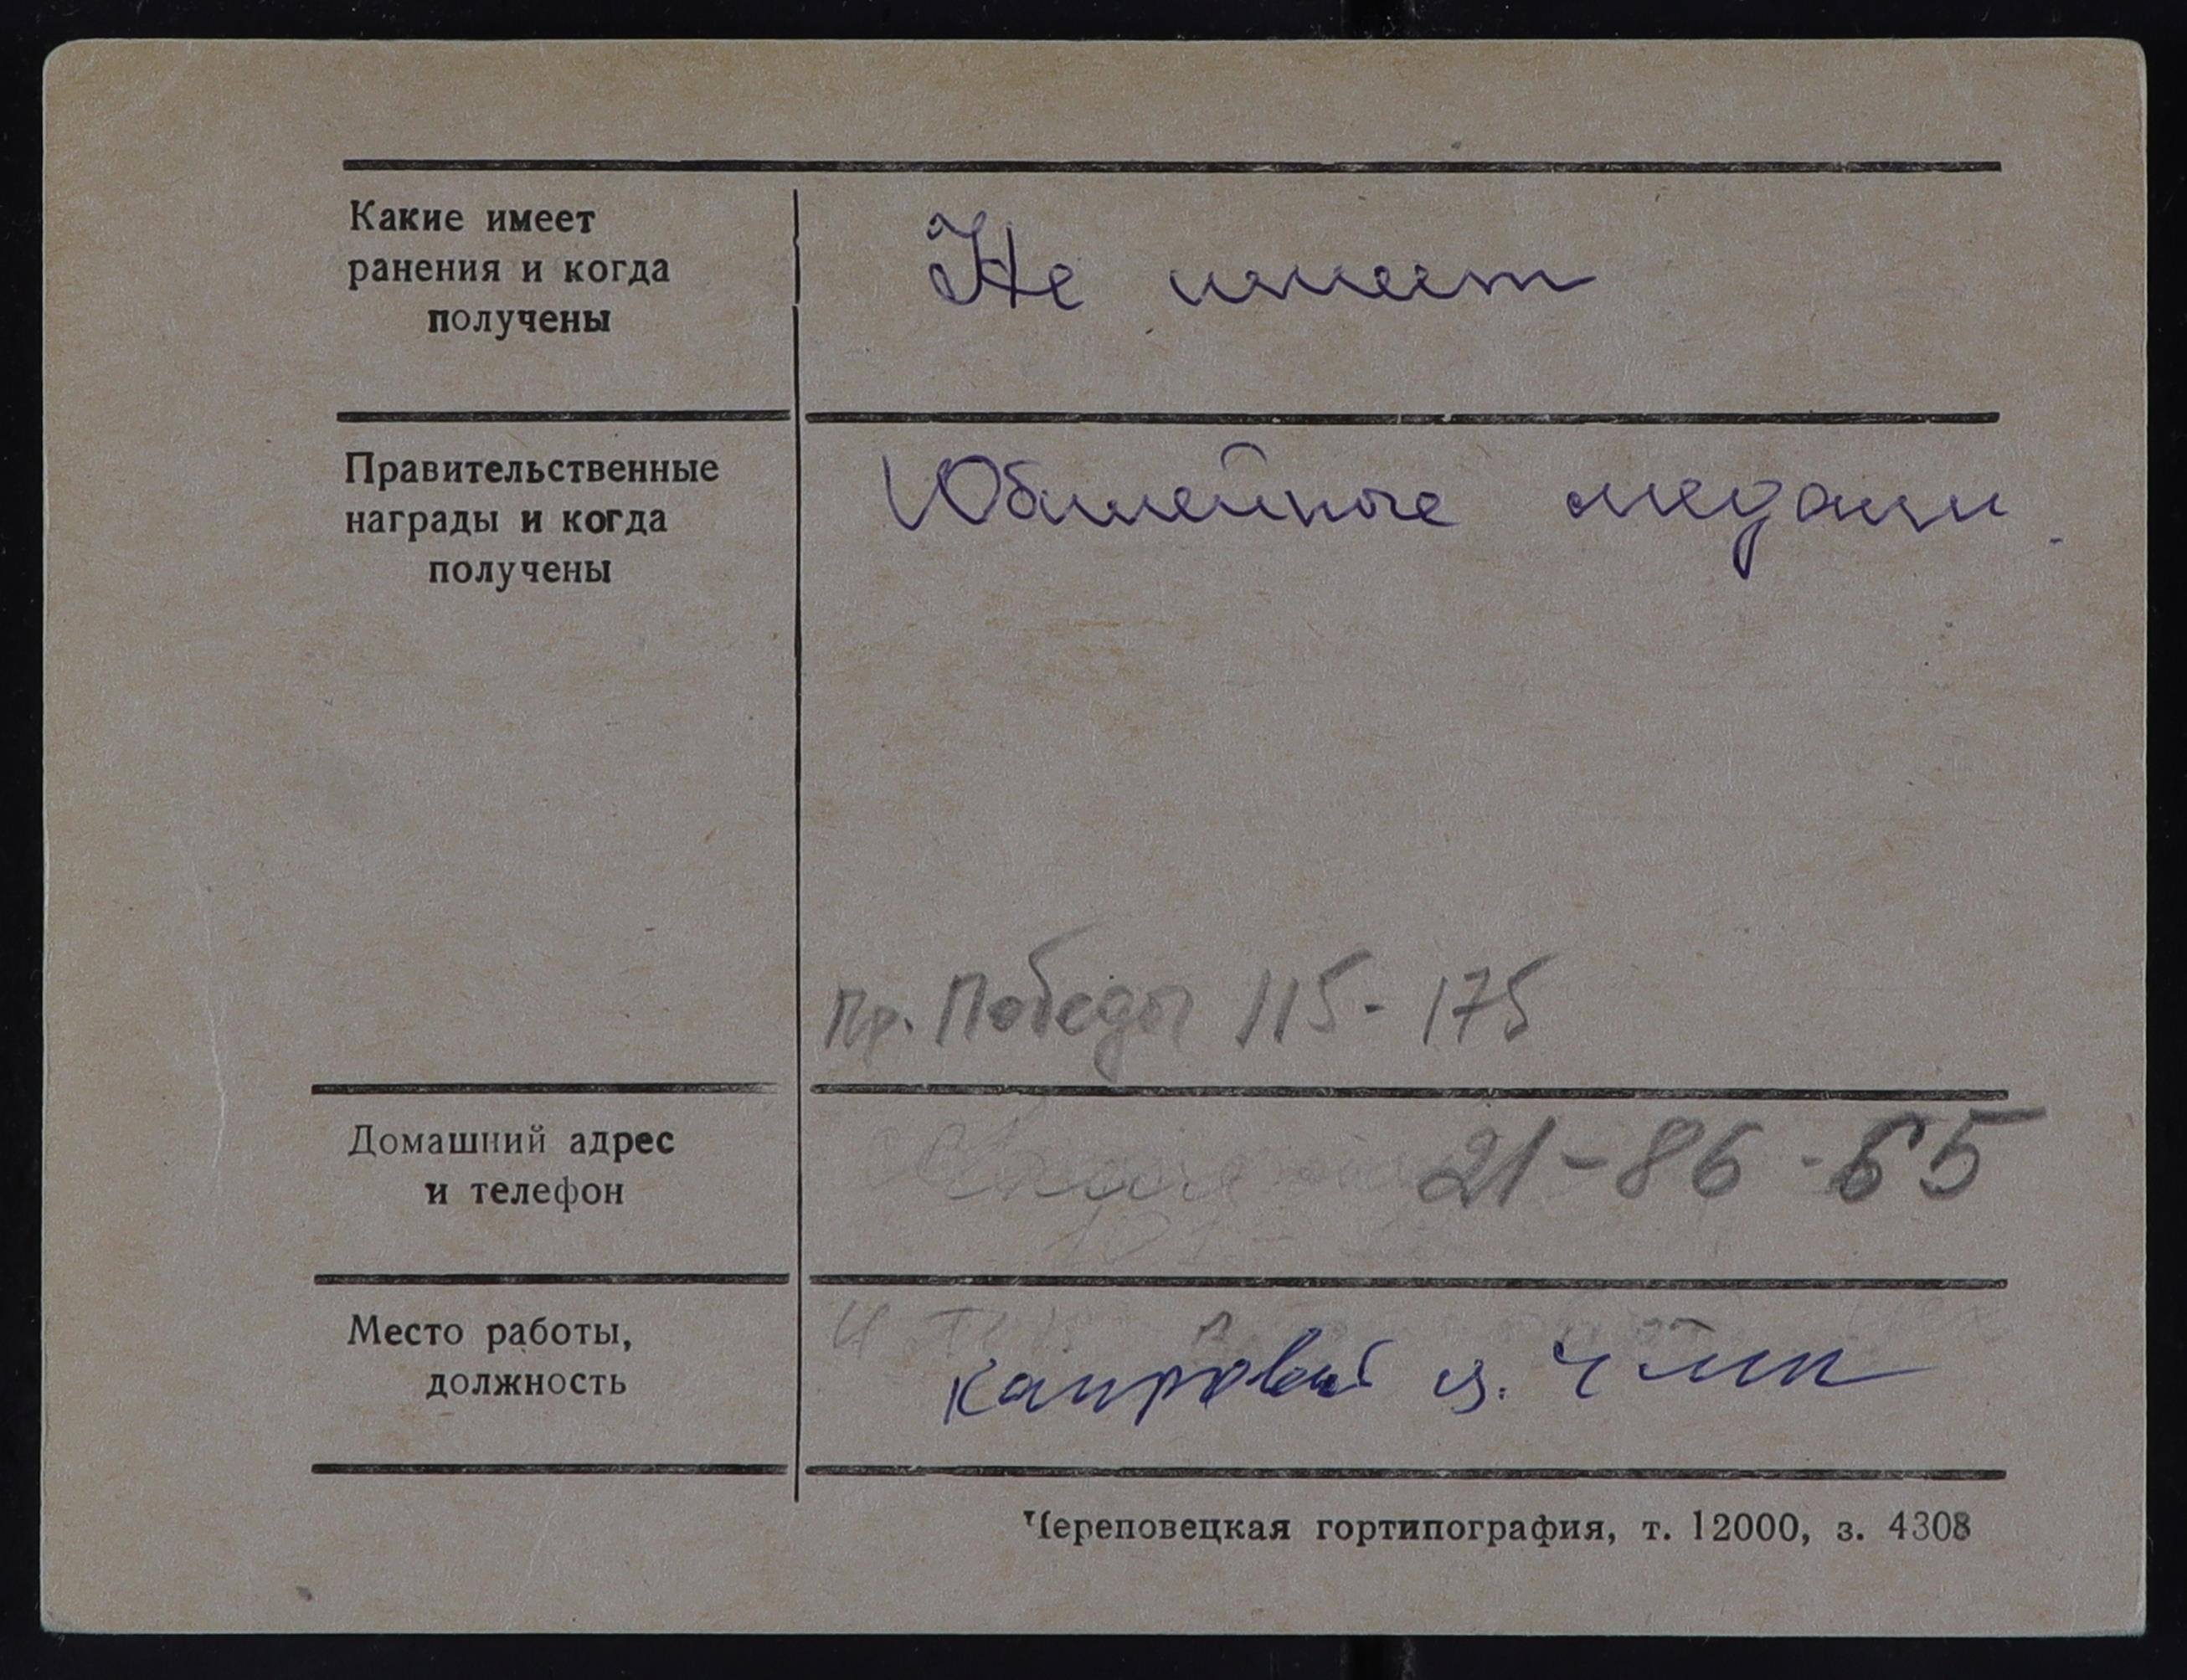 Какие имеет
ранения и когда
получены
Не имеет
Правительственные
награды и когда
получены
Юбилейные медали.
пр. Победы 115-175
Домашний адрес
и телефон
21-86-65
Место работы,
должность
ц. ЧМК
Череповецкая гортипография, т. 12000, з. 4308